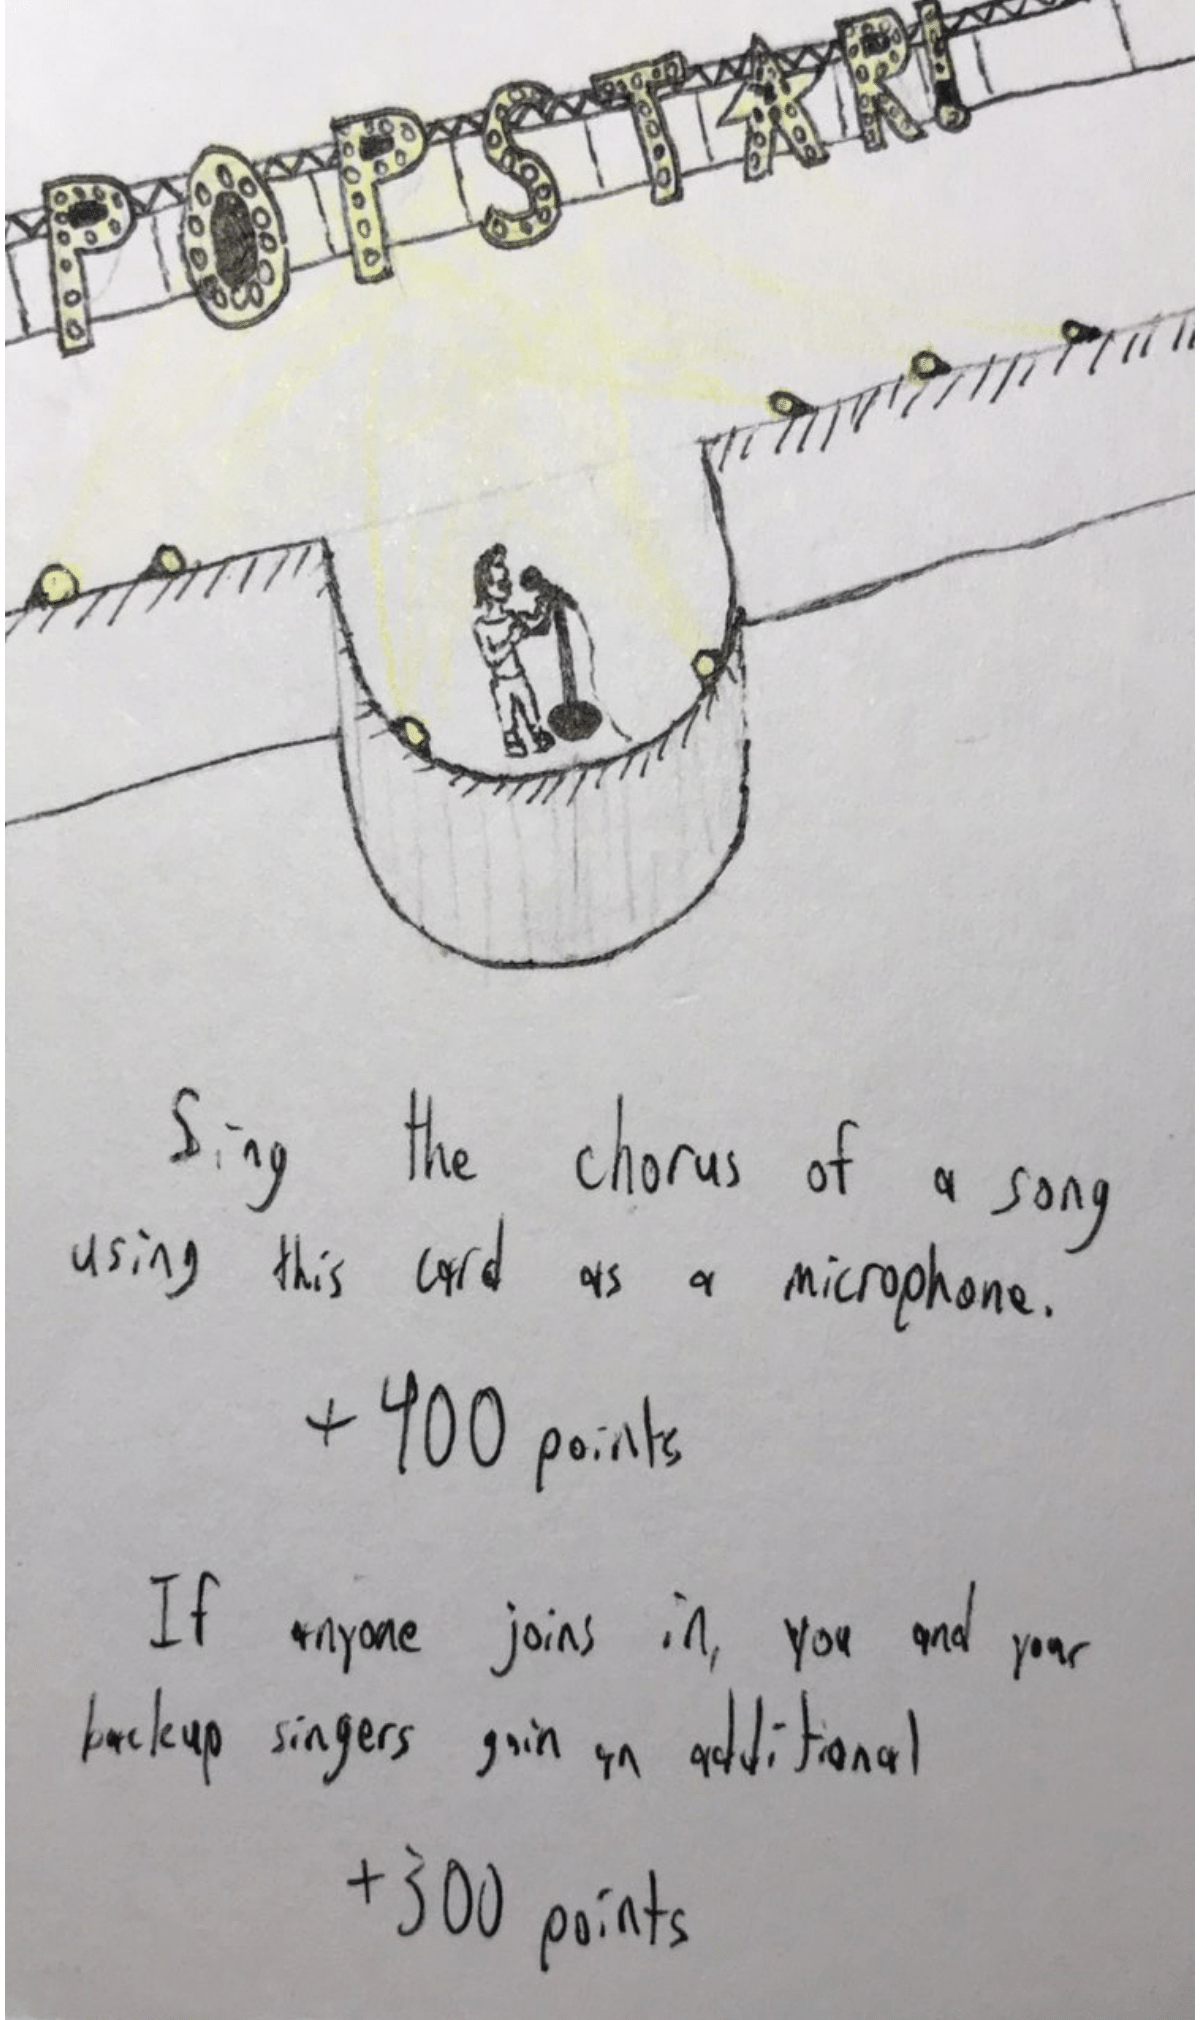 POPSTAR!
Sing the chorus of a song
using this card as a microphone.
+400 points
If anyone joins in, you and your
backup singers gain an additional
+300 points